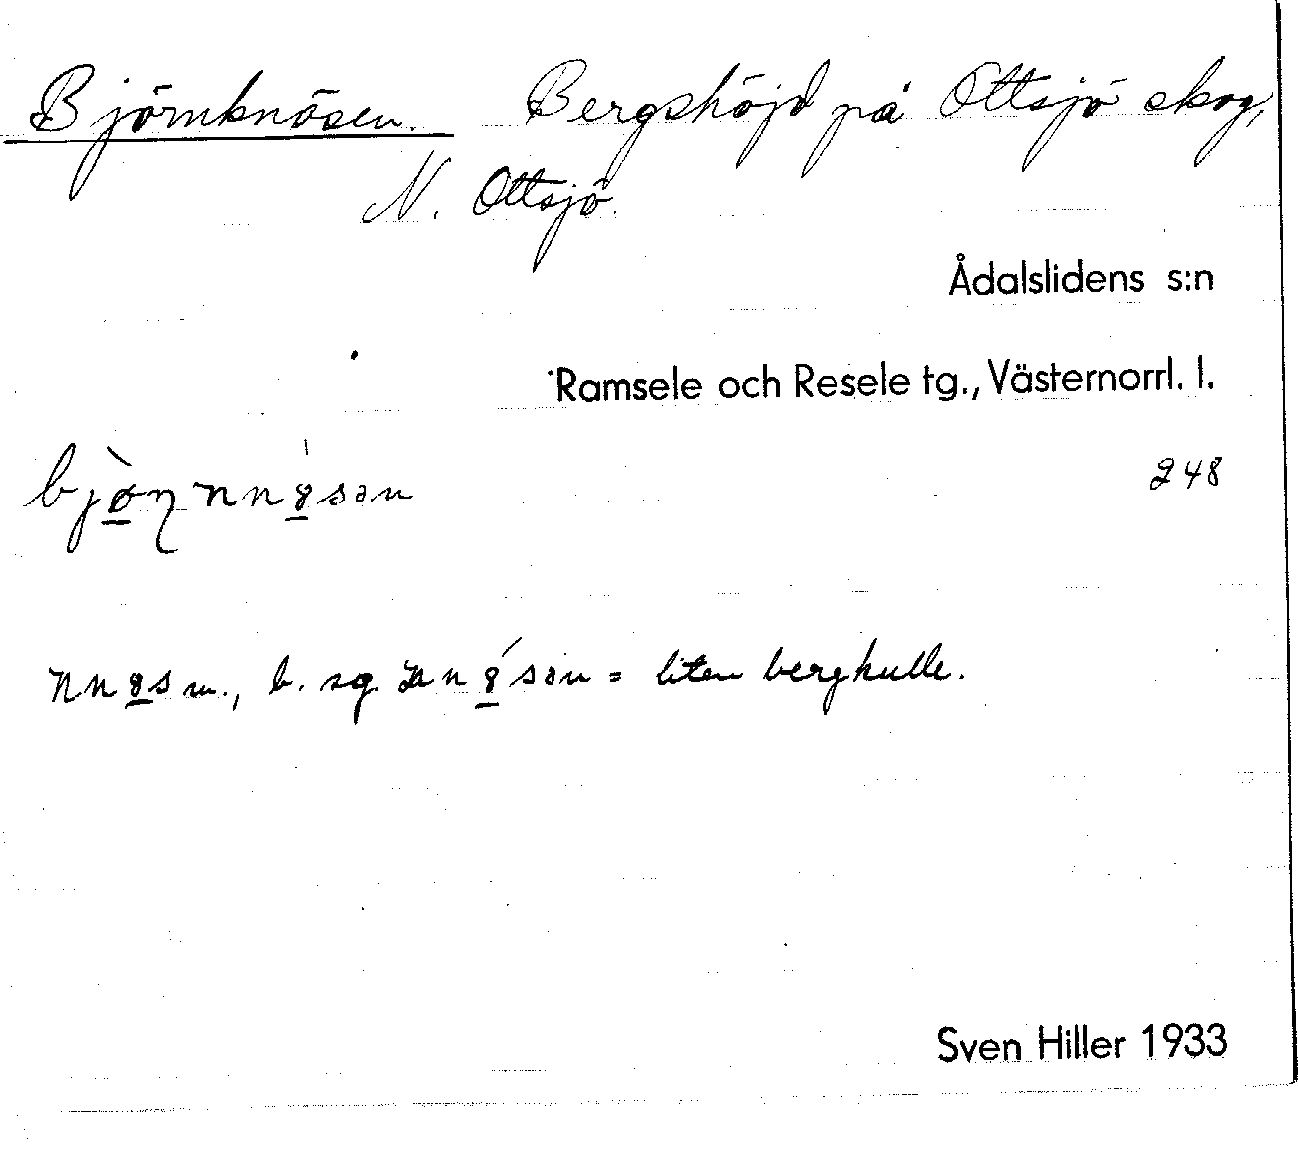 Björnknösen. Bergshöjd på Ottsjö skog,
N. Ottsjö.
Ådalslidens s:n
Ramsele och Resele tg., Västernorrl. l.
248
m., b. sg = liten bergkulle.
Sven Hiller 1933